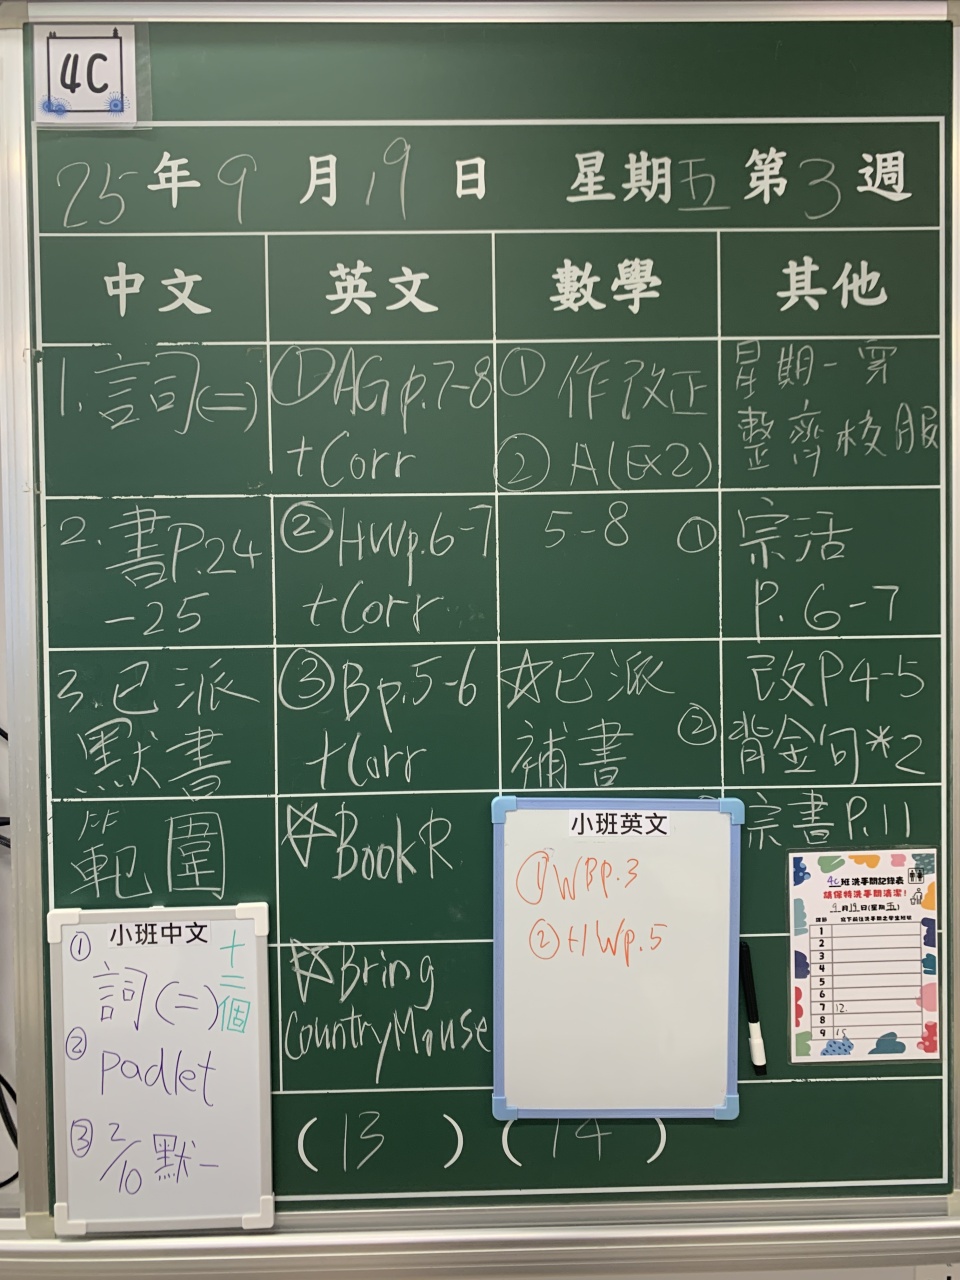 4C
25年9月19日 星期五第3週
中文
英文
數學
其他
1. 詞(二)
2. 書P.24
-25
3. 已派
默書
範圍
①AGp.7-8
+Corr
②HWp.6-7
+Corr
③Bp.5-6
+Corr
☆BookR
☆Bring
CountryMouse
① 作改正
② A(Ex2)
5-8
☆已派
補書
星期一穿
整齊校服
① 宗活
P.6-7
改P4-5
② 背金句*2
宗書P.11
小班中文
① 詞(二)十二個
② padlet
③ 2/10 默一
小班英文
① WBp.3
② HWp.5
(13) (14)
4C班洗手間記錄表
請保持洗手間清潔！
9月19日(星期五)
課節 寫下前往洗手間之學生班號
1
2
3
4
5
6
7 12.
8
9 15